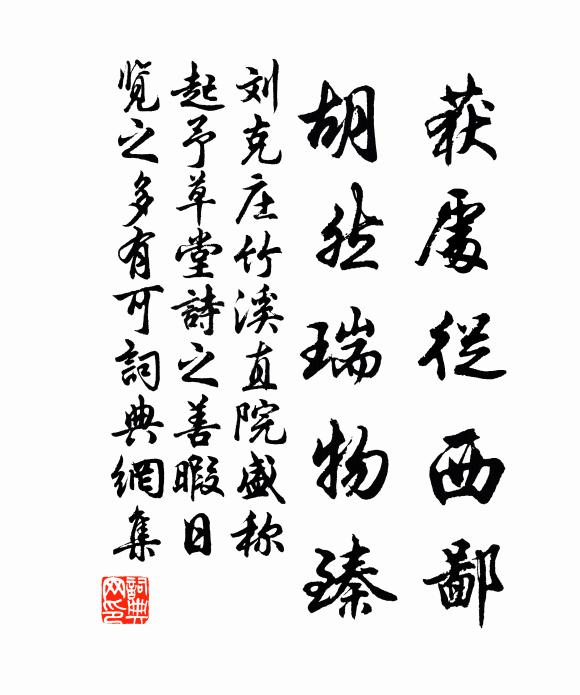 获处從西鄙
胡然瑞物臻
刘克庄竹溪直院盛称
起予草堂詩之善暇日
览之多有可詞典網集
詞典網印